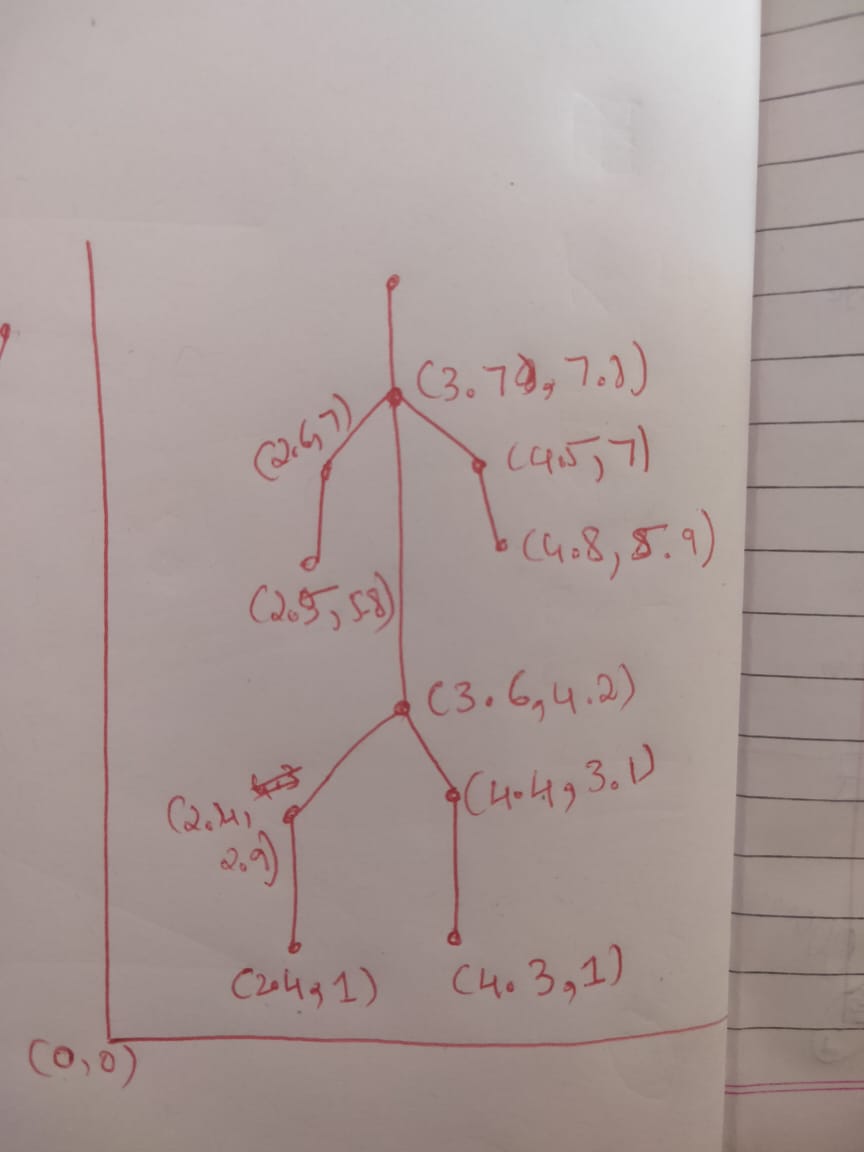 (3.7, 7.8)
(2.6, 7)
(4.5, 7)
(4.8, 5.9)
(2.5, 58)
(3.6, 4.2)
(4.4, 3.1)
(2.4,
2.9)
(2.4, 1)
(4.3, 1)
(0, 0)